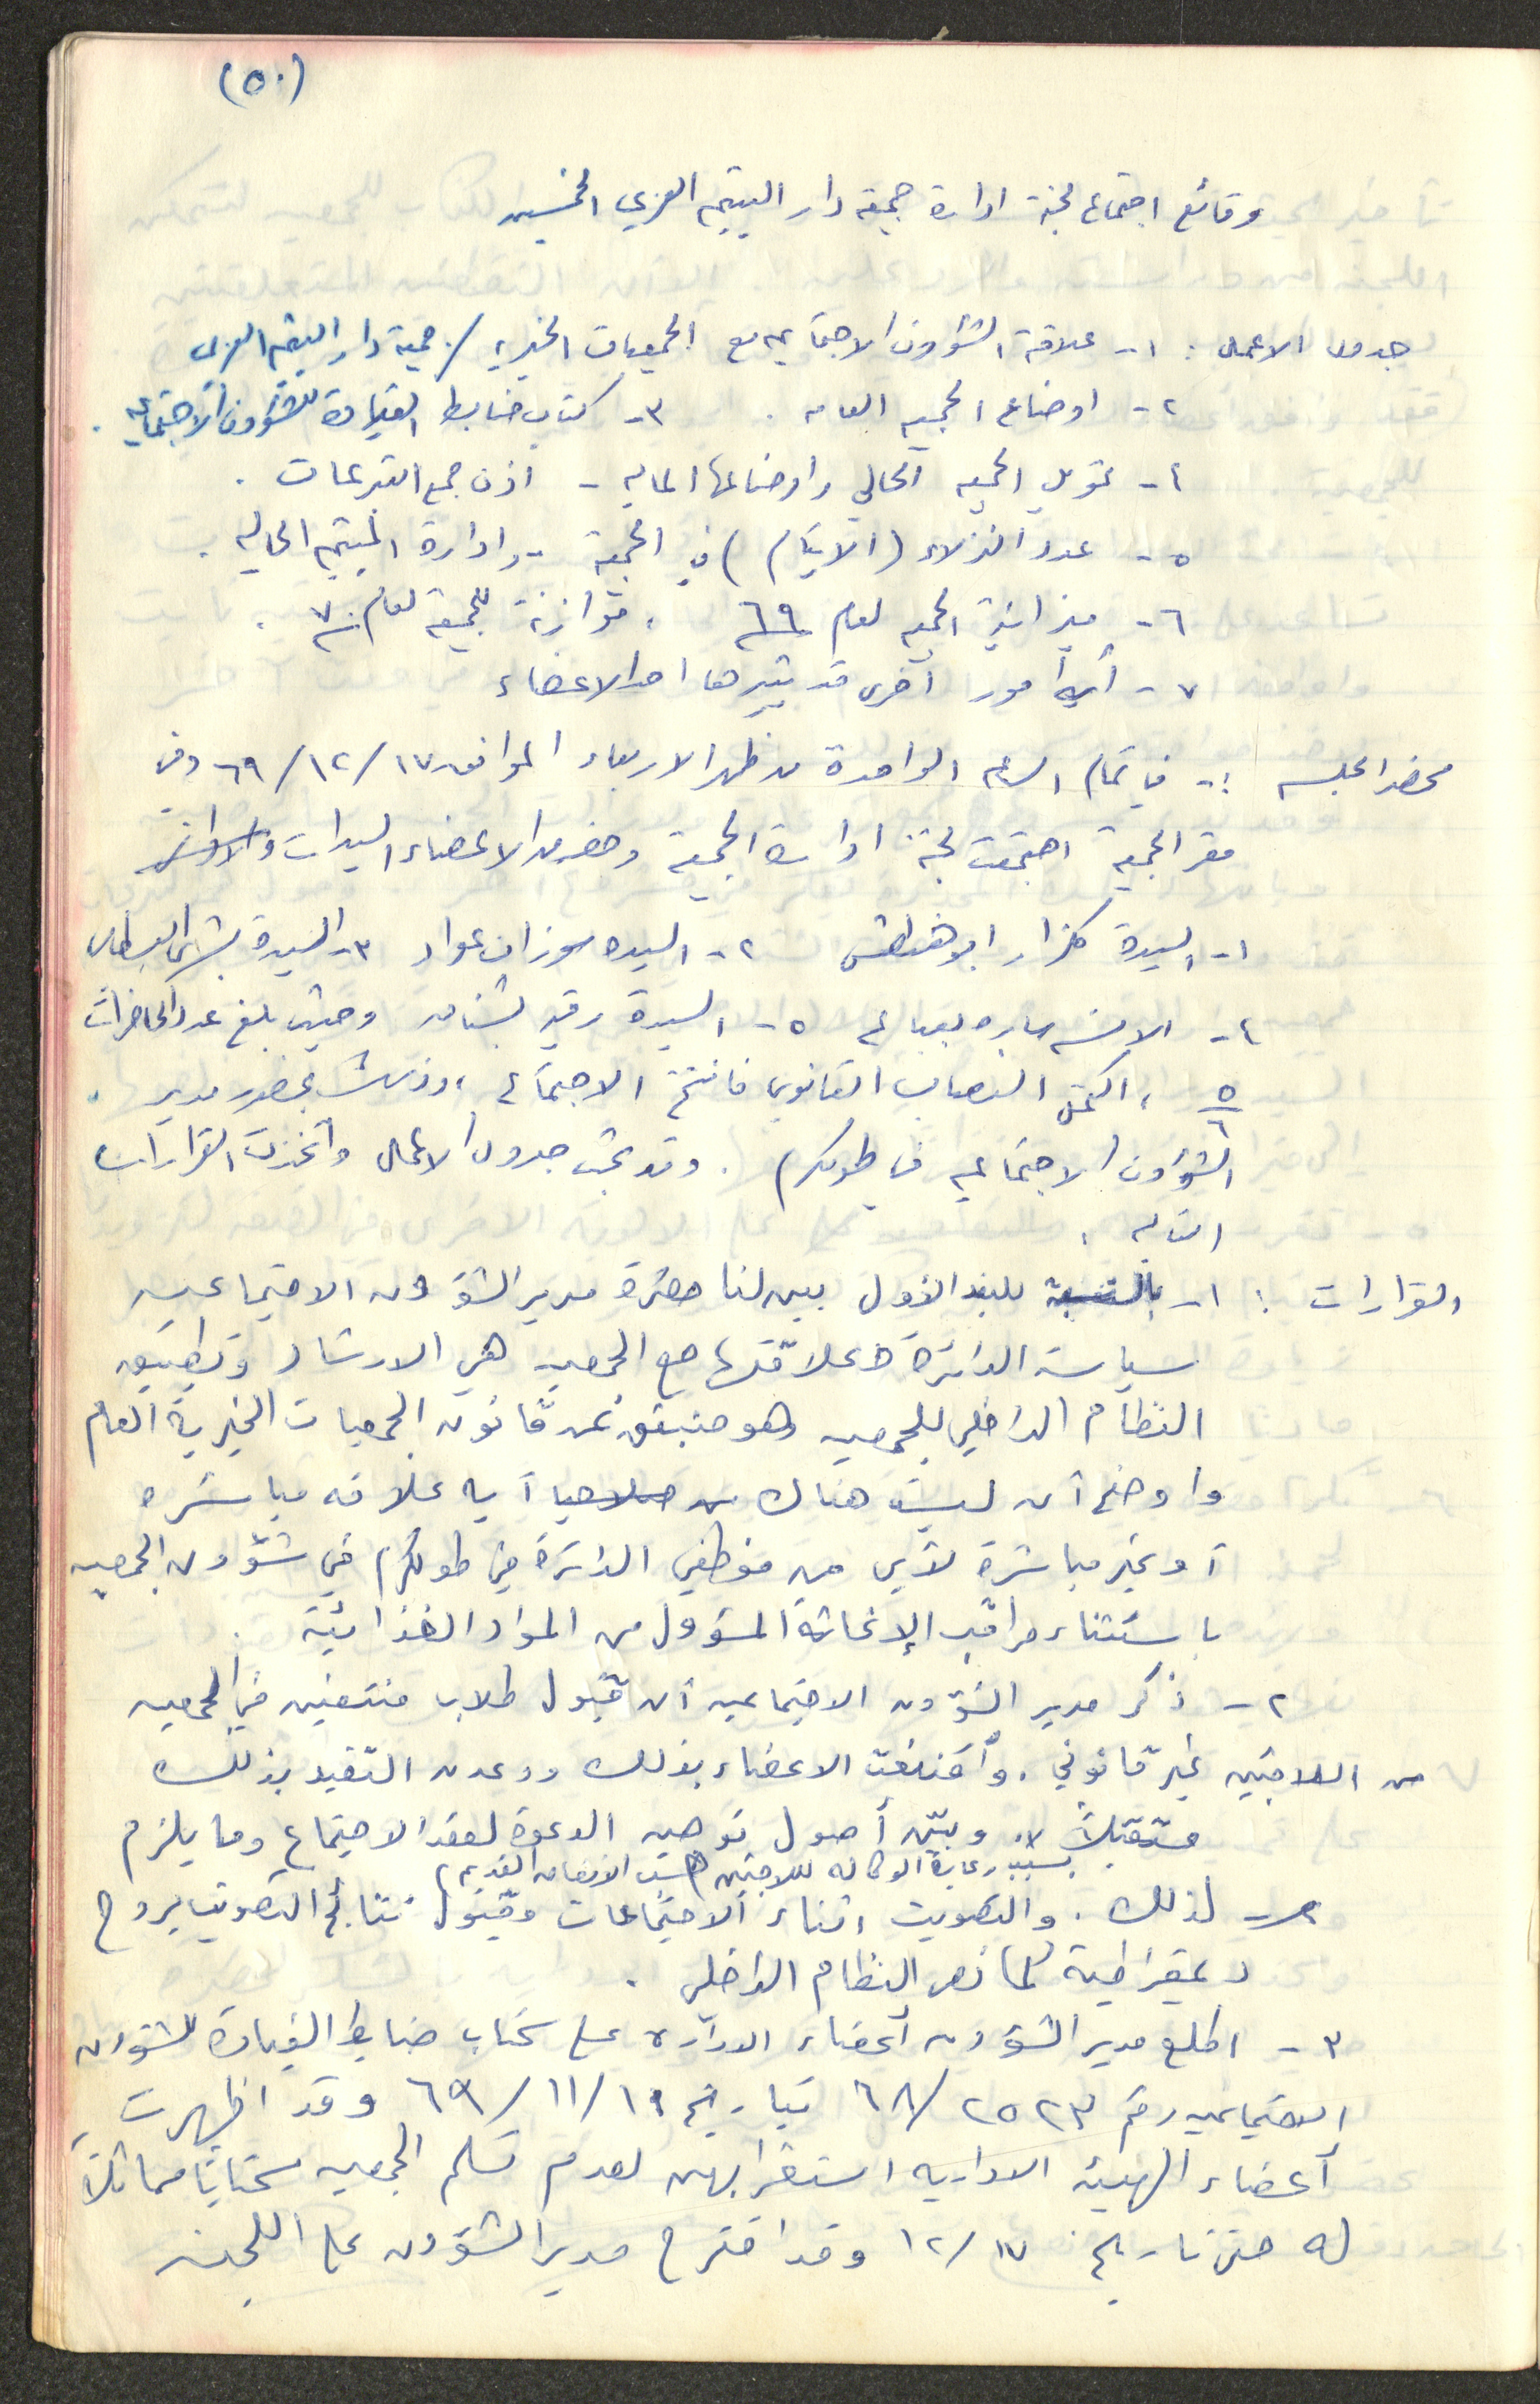 (٥٠)
وقائع اجتماع لجنة ادارة جمعية دار اليتيم العربي الخمسين
جدول الاعمال : ١- علاقة الشؤون الاجتماعيه مع الجمعيات الخيريه / جمعية دار اليتيم العربي
٢- اوضاع الجمعيه العامه . ٣- كتاب ضابط القيادة للشؤون الاجتماعيه .
٤- تمويل الجمعيه الحالي واوضاعها الماليه - اذن جمع التبرعات .
٥- عدد النزلاء (الايتام) في الجمعية - وادارة الميتم الحاليه .
٦- ميزانية الجمعيه لعام ٦٩ ، موازنة للجمعية لعام ٧٠ .
٧- أية أمور أخرى قد يثيرها احد الاعضاء
محضر الجلسه :- في تمام الساعه الواحدة من ظهر الاربعاء الموافق ١٧/١٢/٦٩ وفي
مقر الجمعية اجتمعت لجنة ادارة الجمعية وحضر من الاعضاء السيدات والاوانس
١- السيدة كلزار ابو هنطش ٢- السيده سوزان عواد ٣- السيدة بشرى البسطامي
٤- الانسه ساره ٥- السيدة رقيه وحيث بلغ عدد الحاضرات
٥/٦ ، اكتمل النصاب القانوني فافتتح الاجتماع ، وذلك بحضور مدير
الشؤون الاجتماعيه في طولكرم . وقد بحث جدول الاعمال واتخذت القرارات
التاليه :
القرارات : ١- بالنسبة للبند الأول بين لنا حضرة مدير الشؤون الاجتماعيه
سياسة الدائرة وعلاقتها مع الجمعيه هي الارشاد وتطبيق
النظام الداخلي للجمعيه وهو منبثق عن قانون الجمعيات الخيرية العام
واوضح أن ليس هناك من صلاحيا أيه علاقه مباشره
أو غير مباشرة لأي من موظفي الدائرة في طولكرم في شؤون الجمعيه
باستثناء مراقب الإغاثة المسؤول عن المواد الغذائية .
٢- ذكر مدير الشؤون الاجتماعيه أن قبول طلاب منتفعين في الجمعيه
من اللاجئين غير قانوني . وأقتنعت الاعضاء بذلك ووعدن التقيد بذلك
مستقبلاً . وبيّن أصول توجيه الدعوة لعقد الاجتماع وما يلزم
بسبب رعاية الوكاله للاجئين (حسب الانظمه القديم)
لذلك . والتصويت اثناء الاجتماعات وقبول نتائج التصويت بروح
ديمقراطية كما نص النظام الداخلي .
٣- اطلع مدير الشؤون أعضاء الاداره على كتاب ضابط القيادة للشؤون
الاجتماعيه رقم ٢٥٢٣/٦٨ بتاريخ ١٩/١١/٦٩ وقد اظهرت
أعضاء الهيئه الاداريه استغرابهن لعدم تسلم الجمعيه كتاباً مماثلاً
له حتى تاريخ ١٧/١٢ وقد اقترح مدير الشؤون على اللجنه